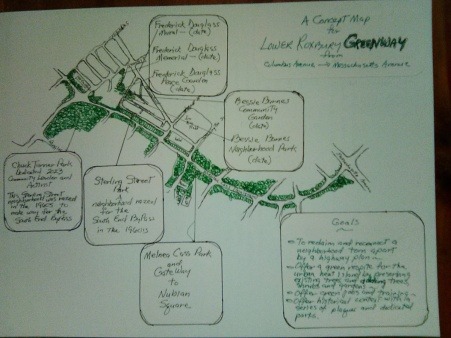 A Concept Map
for
Lower Roxbury GREENWAY
from
Columbus Avenue → Massachusetts Avenue
Frederick Douglass
Mural — (date)
Frederick Douglass
Memorial — (date)
Frederick Douglass
Peace Garden
(date)
Bessie Barnes
Community
Garden
(date)
Bessie Barnes
Neighborhood Park
(date)
Chuck Turner Park
Dedicated 2023
Community Leader and
Activist
This Sterling Street
neighborhood was razed
in the 1960s to
make way for the
South End Bypass
Sterling Street
Park
neighborhood razed
for the
South End Bypass
in the 1960s
Melnea Cass Park
and
GateWay
to
Nubian
Square
Goals
To reclaim and reconnect a
neighborhood torn apart
by a highway plan
Offer a green respite for the
urban heat island by preserving
existing trees and adding trees,
shrubs and gardens
Offer green jobs and training
Offer historical context with a
series of plaques and dedicated
parks.